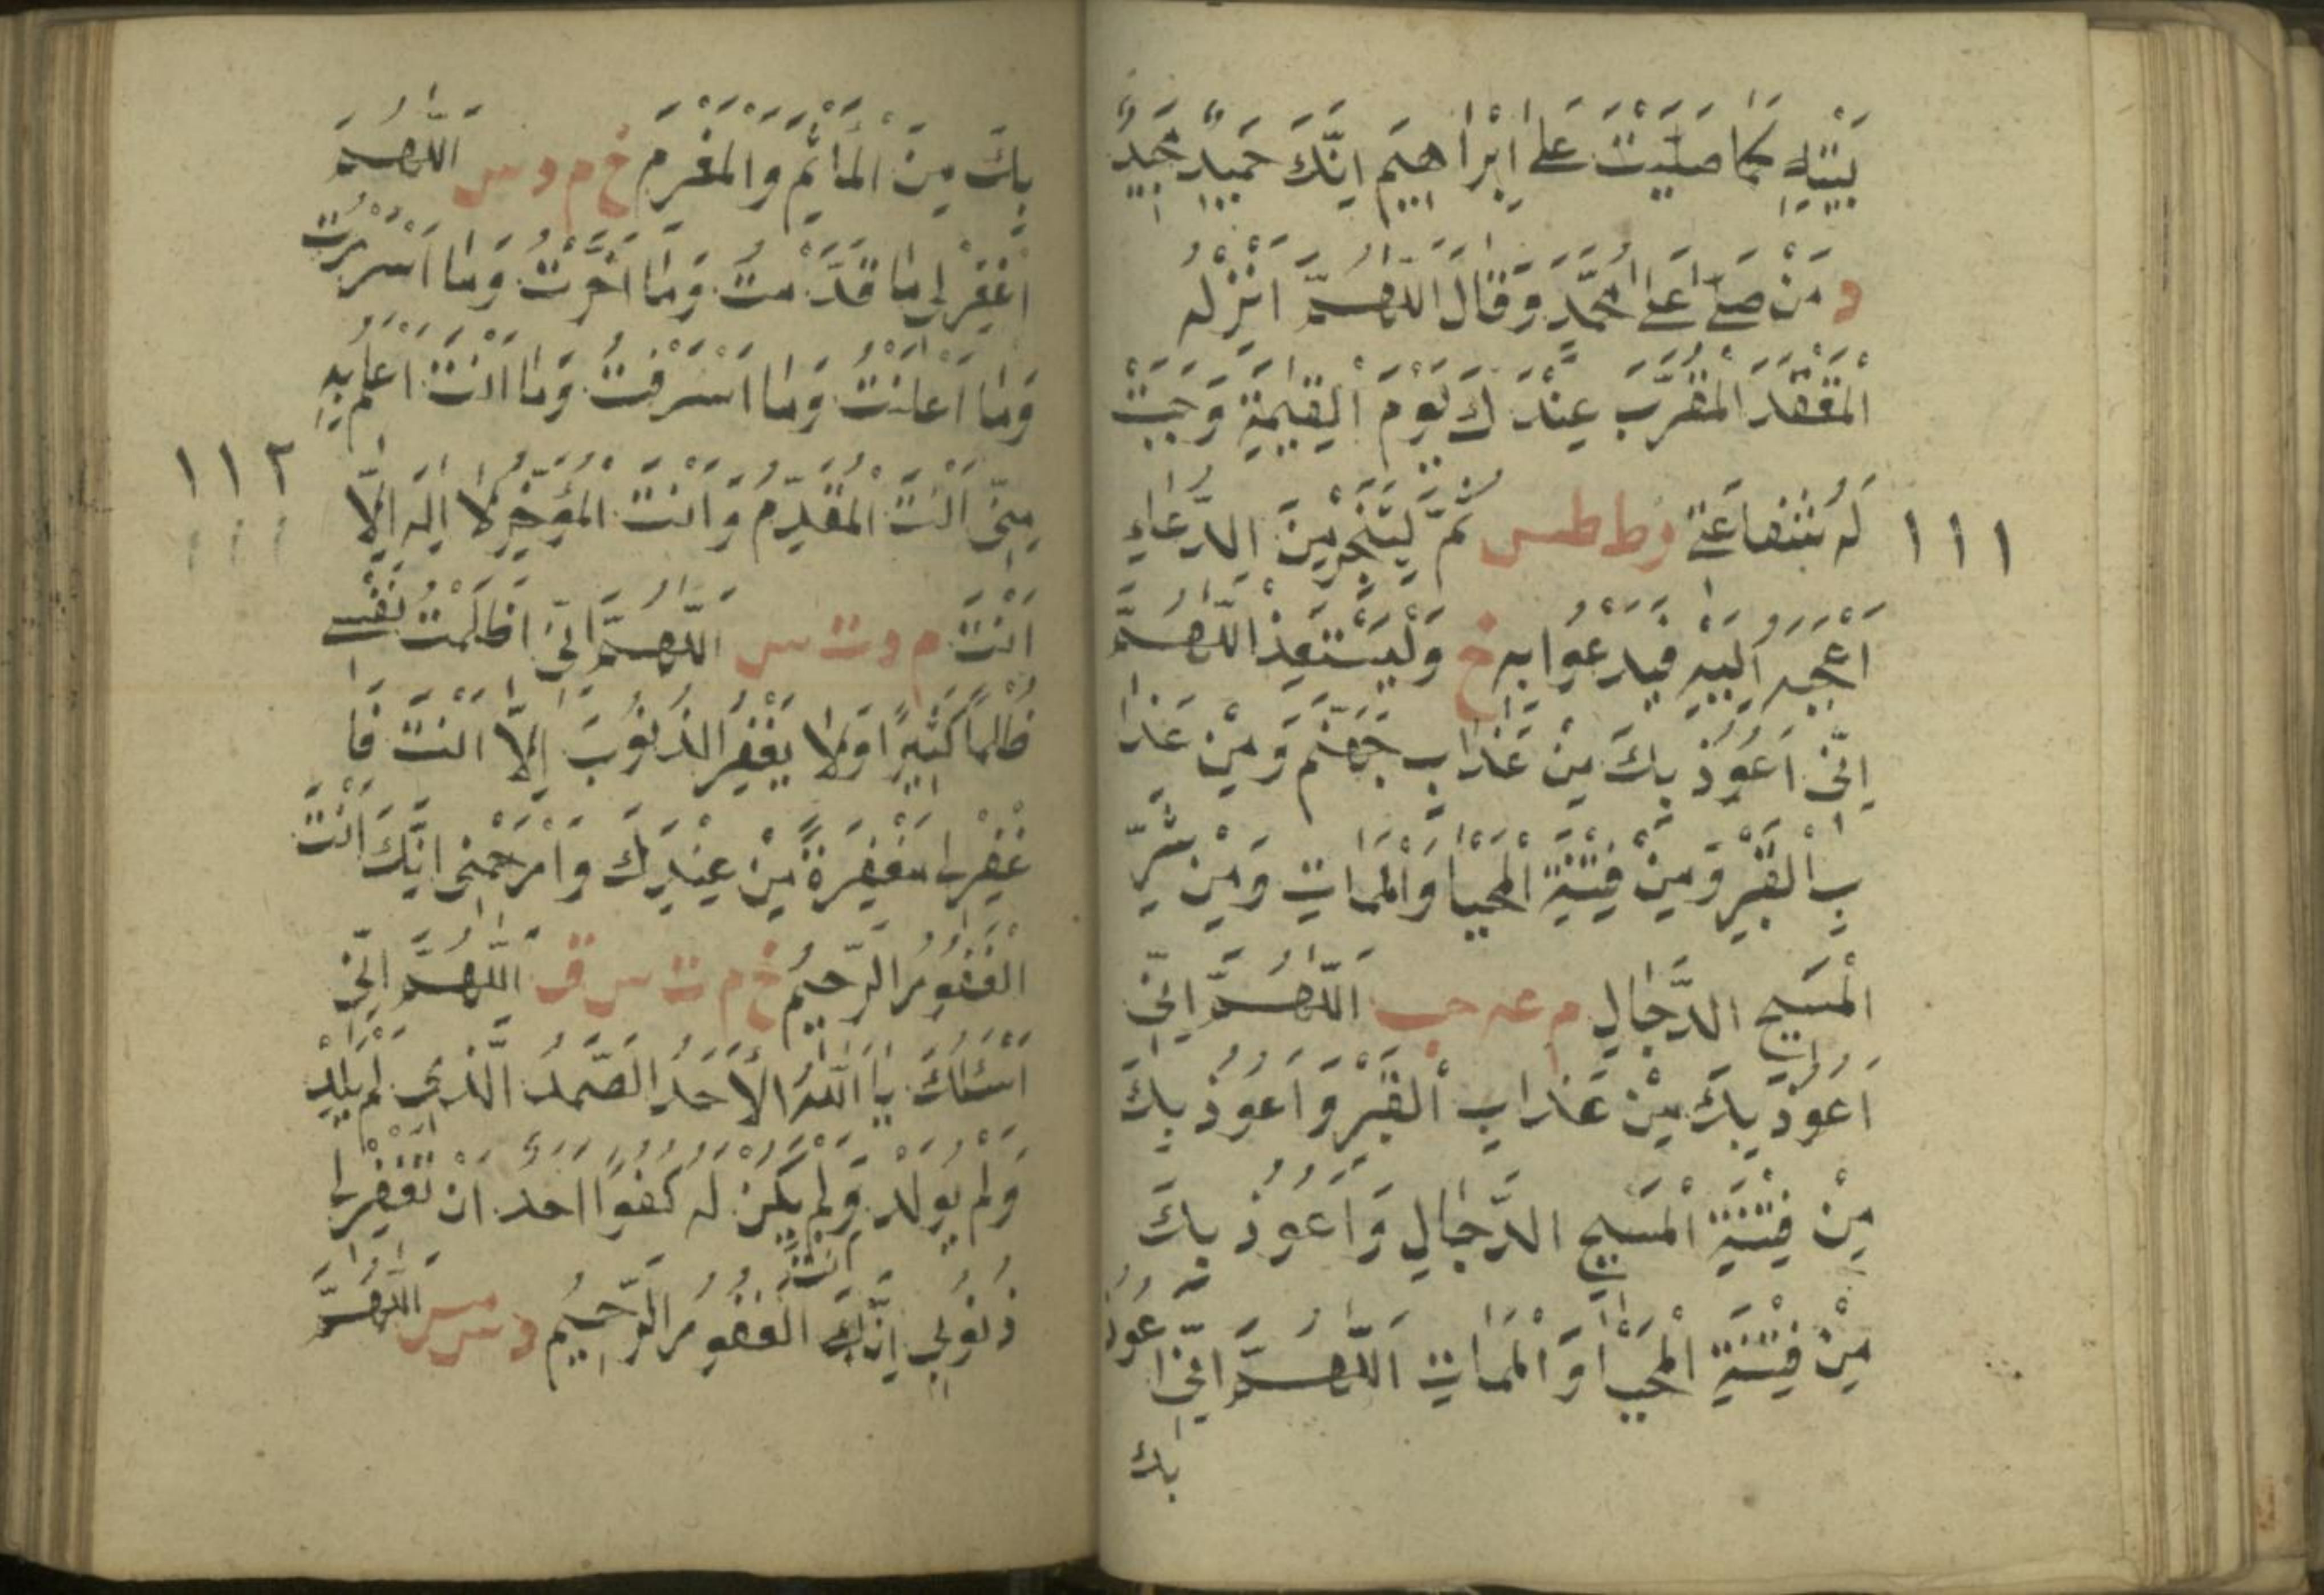 بَيْتِهِ كَمَا صَلَّيْتَ عَلٰى اِبْرَاهِيمَ اِنَّكَ حَمِيدٌ مَجِيدٌ
د مَنْ صَلّٰى عَلٰى مُحَمَّدٍ وَقَالَ اللّٰهُمَّ اَنْزِلْهُ
الْمَقْعَدَ الْمُقَرَّبَ عِنْدَكَ يَوْمَ الْقِيٰمَةِ وَجَبَتْ
لَهُ شَفَاعَتِي ر ط طس ثُمَّ لْيَتَخَيَّرْ مِنَ الدُّعَاءِ
١١١
اَعْجَبَهُ اِلَيْهِ فَيَدْعُوَا بِهِ خ وَلْيَسْتَعِذْ اَللّٰهُمَّ
اِنِّي اَعُوُذُ بِكَ مِنْ عَذَابِ جَهَنَّمَ وَمِنْ عَذَا
بِ الْقَبْرِ وَمِنْ فِتْنَةِ الْمَحْيَا وَالْمَمَاتِ وَمِنْ شَرِّ
الْمَسِيحِ الدَّجَّالِ م عه حب اَللّٰهُمَّ اِنِّي
اَعُوذُ بِكَ مِنْ عَذَابِ الْقَبْرِ وَاَعُوُذُ بِكَ
مِنْ فِتْنَةِ الْمَسِيحِ الدَّجَّالِ وَاَعُوُذُ بِكَ
مِنْ فِتْنَةِ الْمَحْيَا وَالْمَمَاتِ اَللّٰهُمَّ اِنِّي اَعُوذُ
بك
بِكَ مِنَ الْمَأْثَمِ وَالْمَغْرَمِ خ م د س اَللّٰهُمَّ
اغْفِرْ لِي مَا قَدَّمْتُ وَمَا اَخَّرْتُ وَمَا اَسْرَرْتُ
وَمَا اَعْلَنْتُ وَمَا اَسْرَفْتُ وَمَا اَنْتَ اَعْلَمُ بِهِ
مِنِّي اَنْتَ الْمُقَدِّمُ وَاَنْتَ الْمُؤَخِّرُ لَا اِلٰهَ اِلَّا
١١٢
اَنْتَ م د ت س اَللّٰهُمَّ اِنِّي ظَلَمْتُ نَفْسِي
ظُلْمًا كَثِيرًا وَلَا يَغْفِرُ الذُّنُوبَ اِلَّا اَنْتَ فَا
غْفِرْ لِي مَغْفِرَةً مِنْ عِنْدِكَ وَارْحَمْنِي اِنَّكَ اَنْتَ
الْغَفُورُ الرَّحِيمُ خ م ت س ق اَللّٰهُمَّ اِنِّي
اَسْئَلُكَ يَا اَللّٰهُ الْاَحَدُ الصَّمَدُ الَّذِي لَمْ يَلِدْ
وَلَمْ يُولَدْ وَلَمْ يَكُنْ لَهُ كُفُوًا اَحَدٌ اَنْ تَغْفِرَ لِي
ذُنُوبِي اِنَّكَ اَنْتَ الْغَفُورُ الرَّحِيمُ د س مس اَللّٰهُمَّ